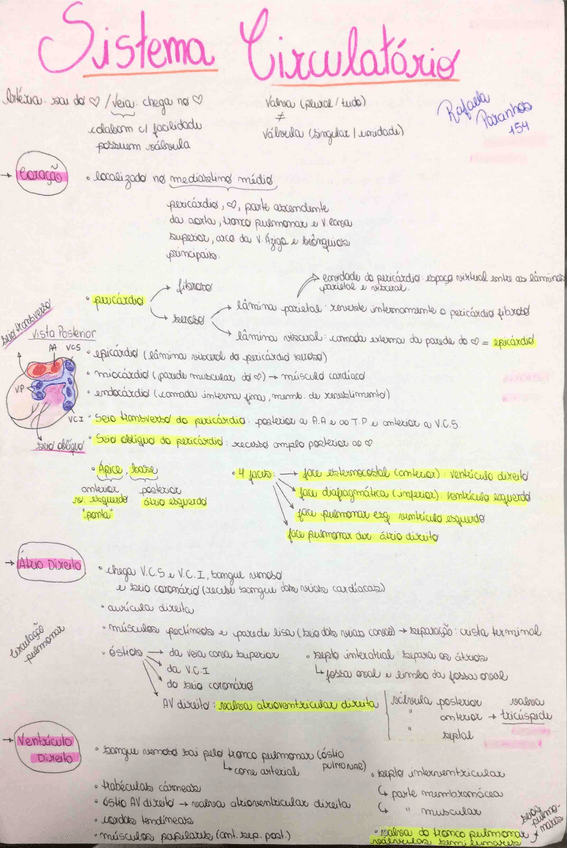 Sistema Circulatório
Artéria: sai do ♡ / Veia: chega no ♡
colabam c/ facilidade
possuem válvula
Valva (plural / tudo)
≠
Válvula (singular / unidade)
Rafaela
Paranhos
154
→ Coração
• localizado no mediastino médio
pericárdio, ♡, parte ascendente
da aorta, tronco pulmonar e V. cava
superior, arco da V. Ázigo e brônquios
principais.
• pericárdio
fibroso
seroso
cavidade do pericárdio espaço virtual entre as lâminas
parietal e visceral.
lâmina parietal: reveste internamente o pericárdio fibroso
lâmina visceral: camada externa da parede do ♡ = epicárdio
seio transverso
Vista Posterior
AA
VCS
VP
VCI
seio oblíquo
• epicárdio (lâmina visceral do pericárdio seroso)
• miocárdio (parede muscular do ♡) → músculo cardíaco
• endocárdio (camada interna fina, memb. de revestimento)
• Seio transverso do pericárdio: posterior a A.A e ao T.P e anterior a V.C.S
• Seio oblíquo do pericárdio: recesso amplo posterior ao ♡
• Ápice
base
anterior
posterior
v. esquerdo
átrio esquerdo
"ponta"
• 4 faces:
face esternocostal (anterior): ventrículo direito
face diafragmática (inferior): ventrículo esquerdo
face pulmonar esq: ventrículo esquerdo
face pulmonar dir: átrio direito
→ Átrio Direito
circulação
pulmonar
• chega V.C.S e V.C.I, sangue venoso
e seio coronário (recebe sangue das veias cardíacas)
• aurícula direita
• músculos pectíneos e parede lisa (seio das veias cavas) → separação: crista terminal
• óstios
da veia cava superior
da V.C.I
do seio coronário
AV direito: valva atrioventricular direita
• septo interatrial separa os átrios
↳ fossa oval e limbo da fossa oval
válvula posterior
" anterior
" septal
valva
→ tricúspide
→ Ventrículo
Direito
• sangue venoso sai pelo tronco pulmonar (óstio
pulmonar)
↳ cone arterial
• trabéculas cárneas
• óstio AV direito → valva atrioventricular direita
• cordas tendíneas
• músculos papilares (ant. sep. post.)
• septo interventricular
↳ parte membranácea
↳ " muscular
• valva do tronco pulmonar
válvulas semilunares